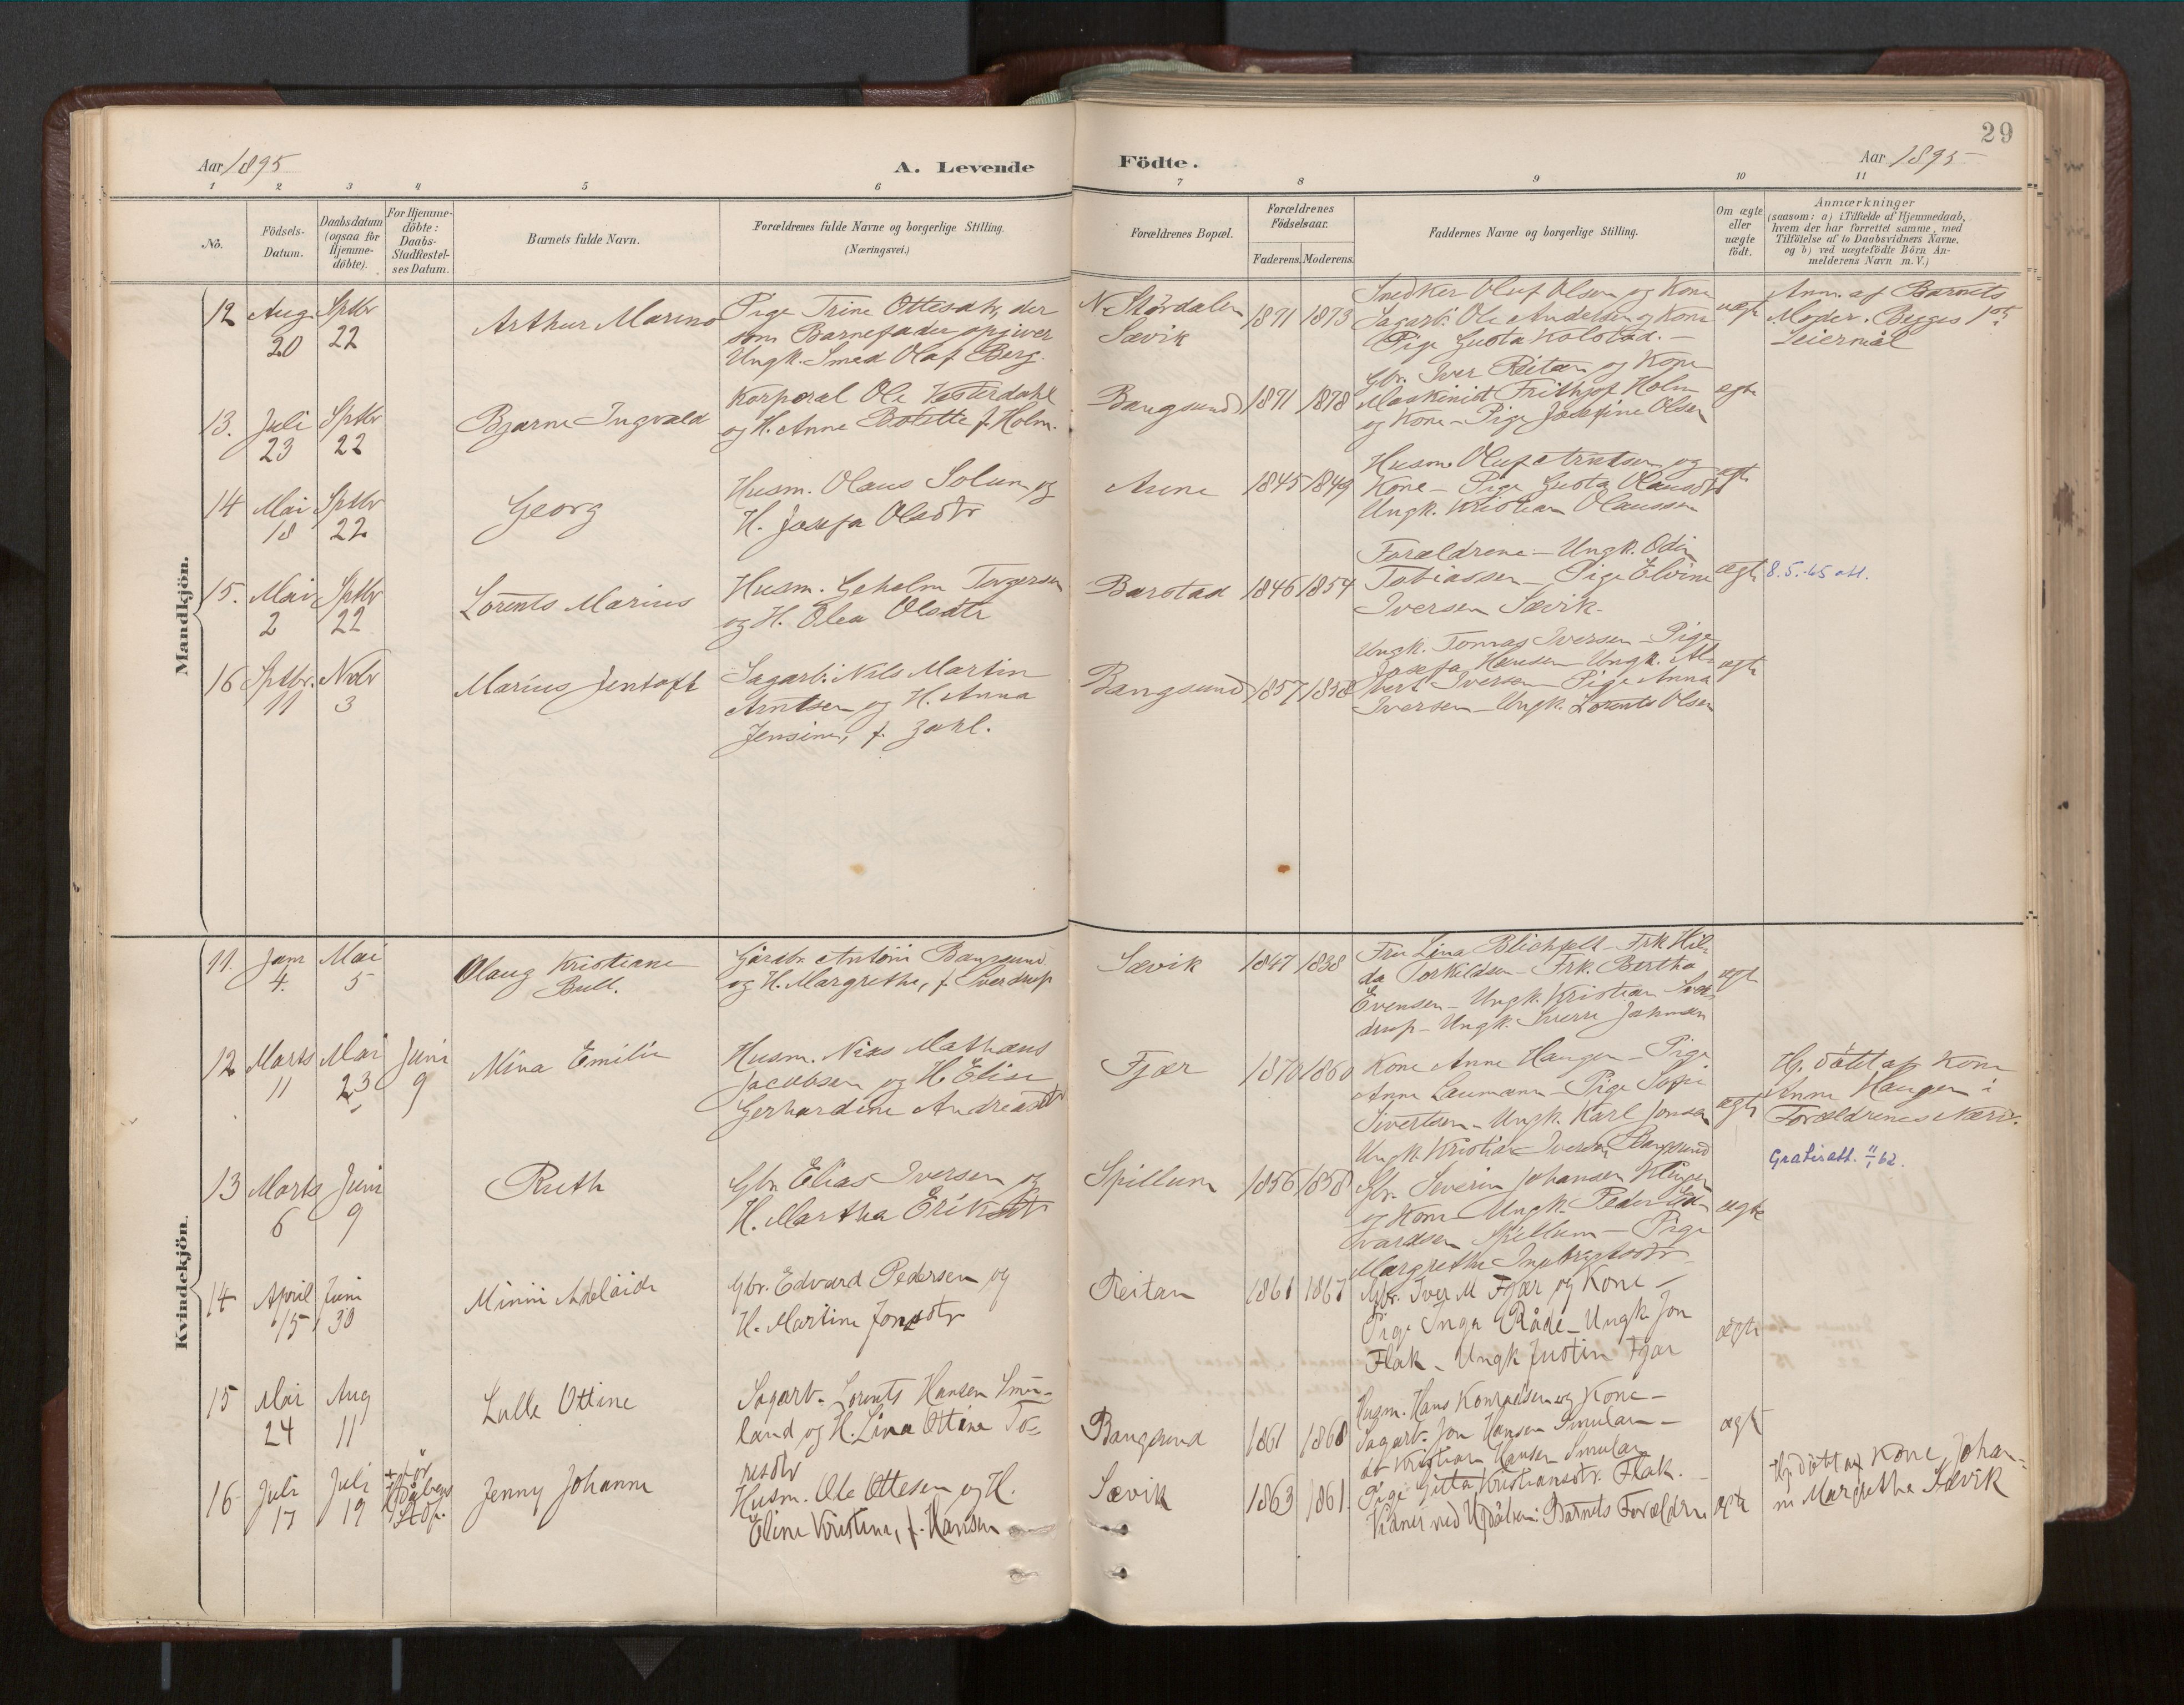 29
Aar 1895
A. Levende
Födte.
Aar 1895
1 2 3 4 5 6 7 8 9 10 11
No.
Födsels-
Datum.
Daabsdatum
(ogsaa for
Hjemme-
döbte).
For Hjemme-
döbte:
Daabs-
Stadfæstel-
ses Datum.
Barnets fulde Navn.
Forældrenes fulde Navne og borgerlige Stilling.
(Næringsvei.)
Forældrenes Bopæl.
Forældrenes
Födselsaar.
Faderens. Moderens.
Faddernes Navne og borgerlige Stilling.
Om ægte
eller
uægte
födt.
Anmærkninger
(saasom: a) i Tilfælde af Hjemmedaab,
hvem der har forrettet samme, med
Tilföielse af to Daabsvidners Navne,
og b) ved uegtefödte Börn An-
melderens Navn m.V.)
Mandkjön.
12 Aug. 20 Sptbr 22
Arthur Marino
Pige Trine Ottesdtr, der
som Barnefader opgiver
Ungk. Smed Olaf Berg.
N. Stördalen
Sævik
1871 1873
Snedker Oluf Olsen og Kone
Sagarb. Ole Andersen og Kone
Pige Gusta Kolstad. –
uægte
Anm. af Barnets
Moder. Begges 1ste
Leiermål
13. Juli 23 Sptbr 22
Bjarne Ingvald
Korporal Ole Vesterdahl
og H. Anne Bolette f. Holm.
Bangsund
1871 1878
Gbr. Iver Reitan og Kone
Maskinist Frithjof Holm
og Kone – Pige Josefine Olsen
ægte
14 Mai 18 Sptbr 22
Georg
Husm. Olaus Solum og
H. Josefa Olsdtr
1845 1849
Husm. Oluf Arntsen og
Kone – Pige Gusta Olausdtr
Ungk. Kristian Olaussen
ægte
15. Mai 2 Sptbr 22
Lorents Marius
Husm. Torgersen
og H. Olea Olsdtr
Barstad
1846 1854
Forældrene – Ungk. Odin
Tobiassen – Pige Elvine
Iversen Sævik.
ægte
8.5.-65 att.
16 Sptbr. 11 Novbr 3
Marius Jentoft
Sagarb. Nils Martin
Arntsen og H. Anna
Jensine, f. Zahl.
Bangsund
1857 1858
Ungk. Tomas Iversen – Pige
Josefa Hansen – Ungk. Al-
bert Iversen – Pige Anna
Iversen – Ungk. Lorents Olsen
ægte
Kvindekjön.
11. Jan 4. Mai 5
Olaug Kristiane
Bull.
Gårdbr. Antoni Bangsund
og H. Margrethe, f. Sverdrup
Sævik
1847 1858
Fru Lina Blichfelt – Frk Hil-
da Torkildsen – Frk. Bertha
Evensen – Ungk. Kristian Sver-
drup – Ungk. Sverre Johnsen
ægte
12 Marts 11 Mai 23 Juni 9
Mina Emilie
Husm. Nias Mathæus
Jacobsen og H. Elise
Gerhardine Andreasdtr
Fjær
1870 1860
Kone Anne Haugen – Pige
Anne Laumann – Pige Sofie
Sivertsen – Ungk. Karl Jonsen
Ungk. Kristian Iversen Bangsund
ægte
Hj. döbt af Kone
Anne Haugen i
Forældrenes Nærv.
Gratisatt. 11/1 62.
13 Marts 6 Juni 9
Ruth
Gbr. Elias Iversen og
H. Martha Eriksdtr
Spillum
1856 1858
Gbr. Severin Johansen Klingen
og Kone – Ungk. Peder Ed-
vardsen Spillum – Pige
Margrethe Ingebrigtsdtr
ægte
14 April 15 Juni 30
Minni Adelaide
Gbr. Edvard Pedersen og
H. Martine Jonsdtr
Reitan
1861 1867
Gbr. Iver M Fjær og Kone –
Pige Inga Råde – Ungk. Jon
Flak – Ungk Justin Fjær
ægte
15 Mai 24 Aug 11
Lulle Ottine
Sagarb. Lorents Hansen Smu-
land og H. Lina Ottine To-
resdtr
Bangsund
1861 1868
Husm. Hans Konradsen og Kone –
Sagarb. Jon Hansen Smulan –
do Kristian Hansen Smulan
Pige Gitta Kristiansdtr. Flak.
ægte
16 Juli 17 Juli 19
† för
Hjdåbens
Stdf.
Jenny Johanne
Husm. Ole Ottesen og H.
Eline Kristine, f. Hansen
Sævik
1863 1861.
Vidner ved Hjdåben: Barnets Forældre
ægte
Hj. döbt af Kone Johan-
ne Margrethe Sævik